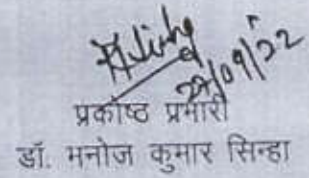 27/09/22
प्रकोष्ठ प्रभारी
डॉ. मनोज कुमार सिन्हा